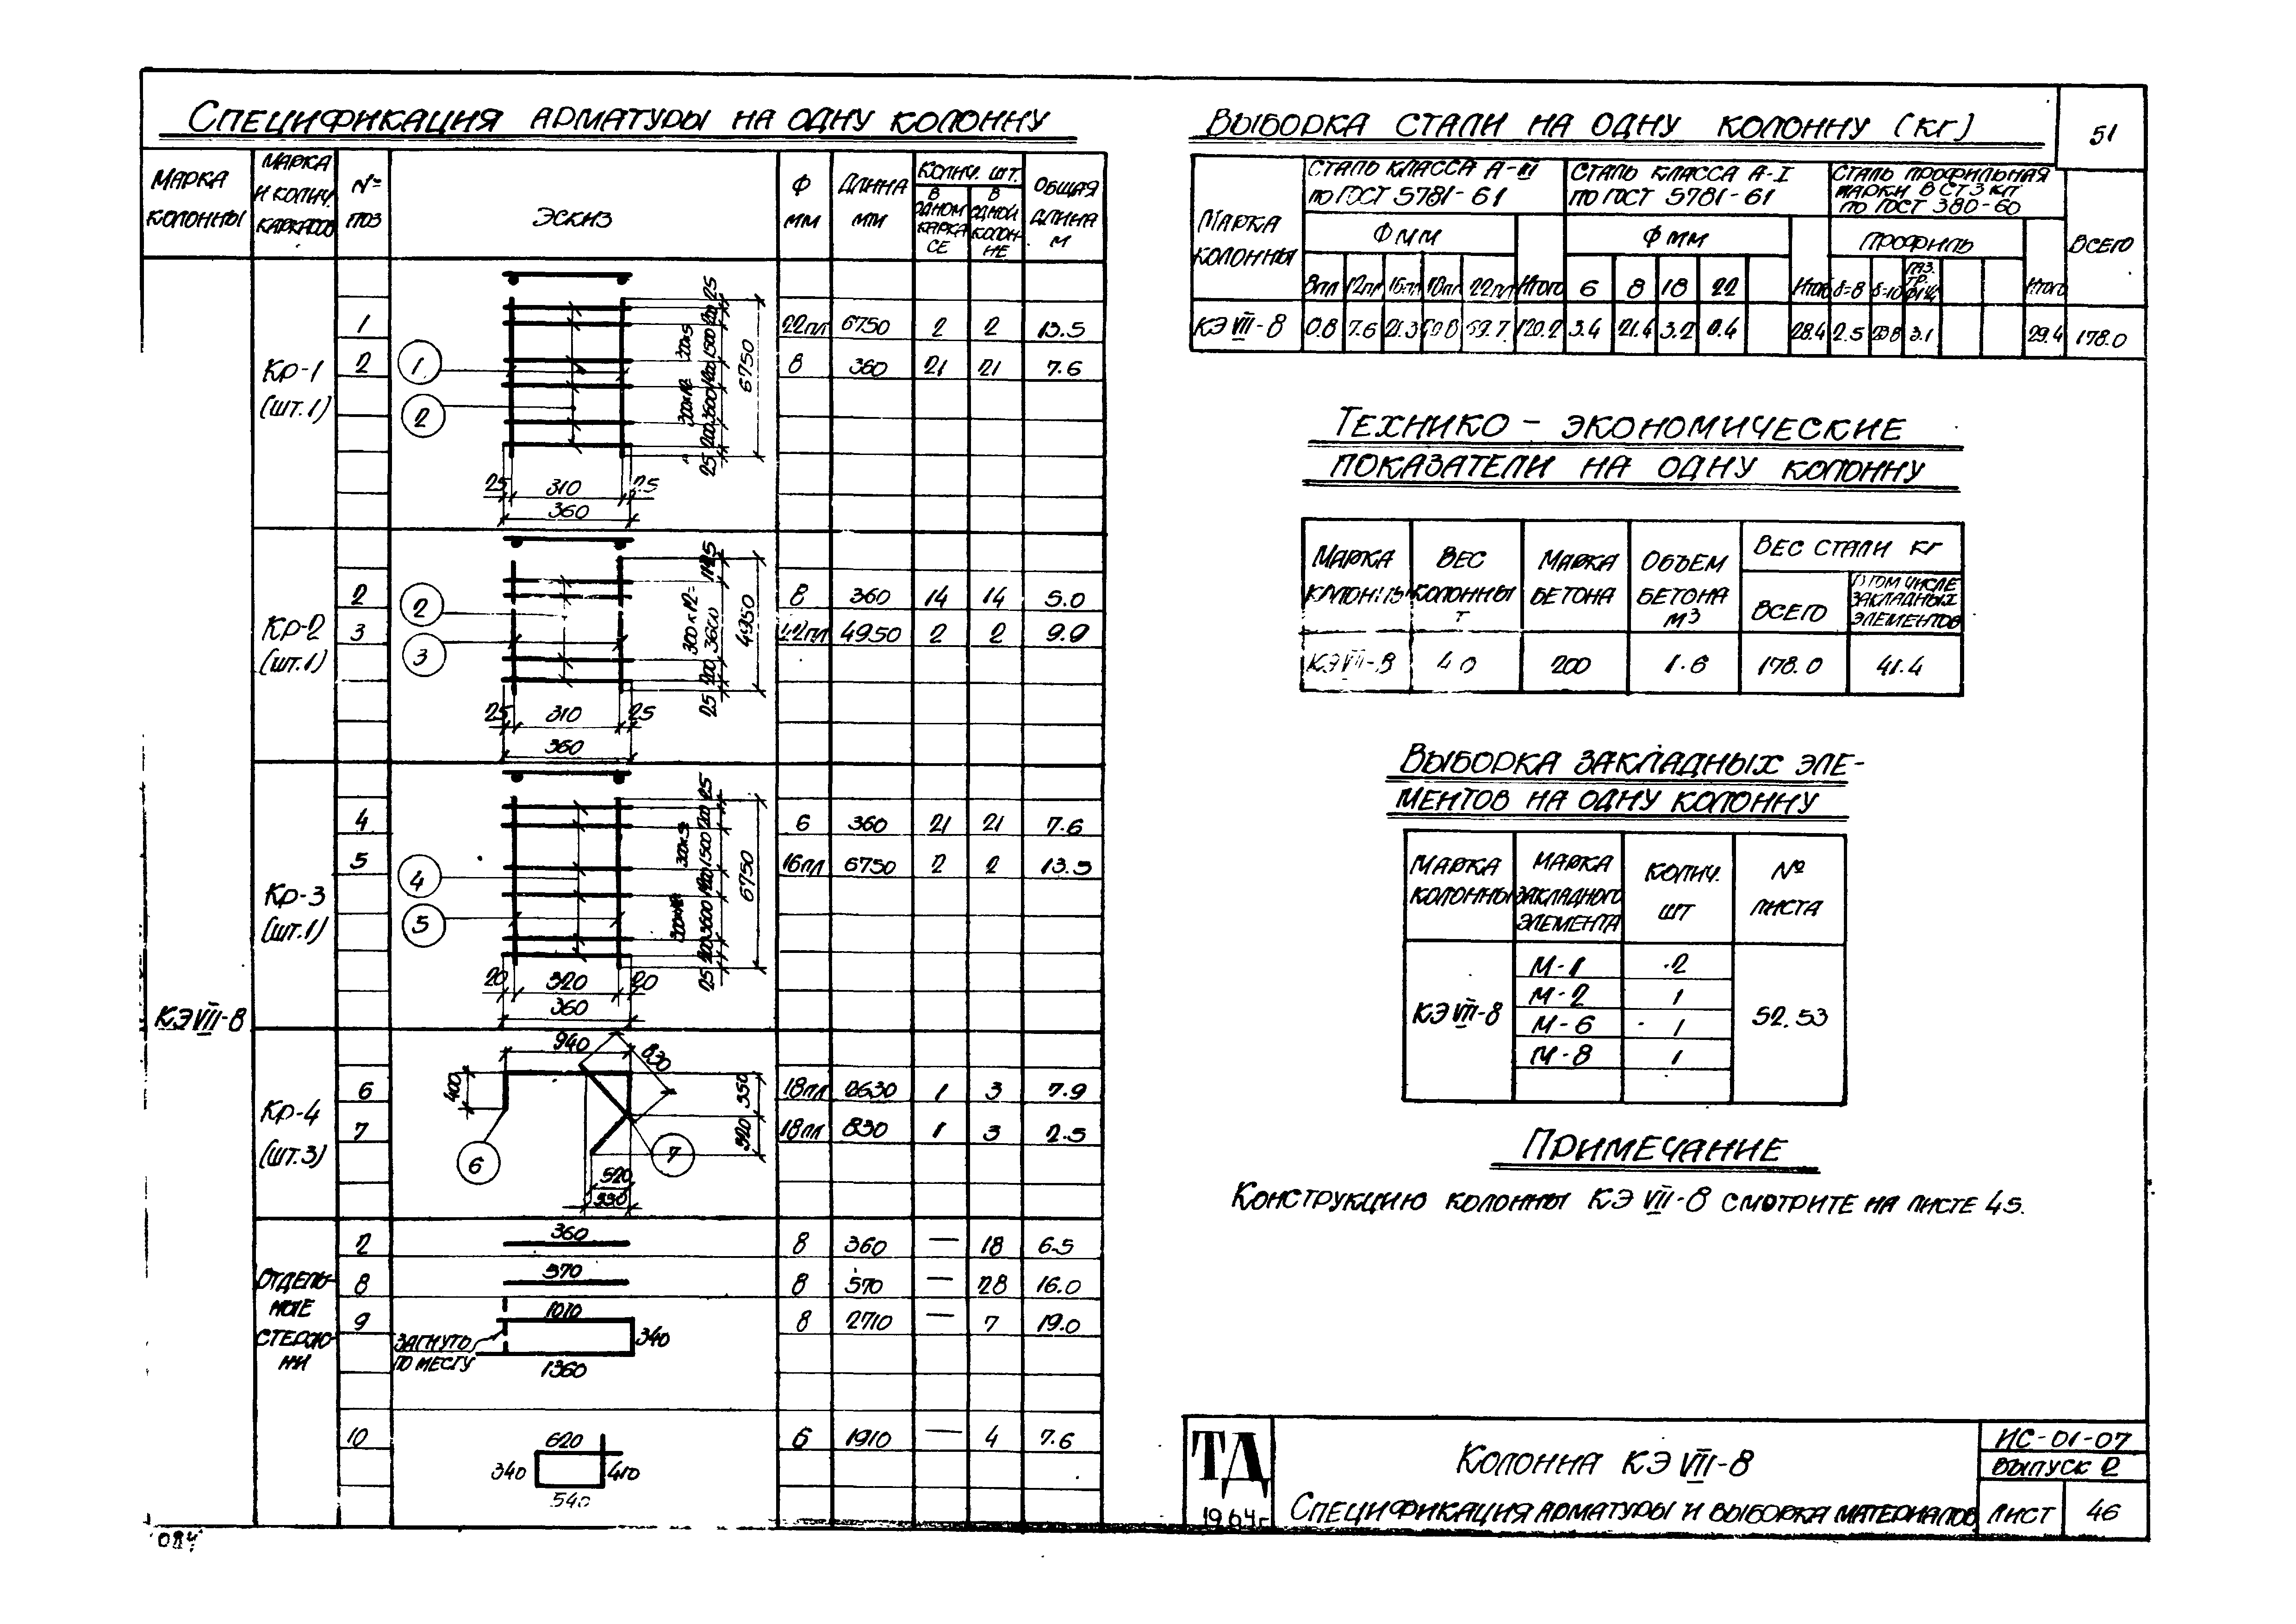 51
Спецификация арматуры на одну колонну
Марка колонны | Марка и колич. каркасов | № поз | Эскиз | Ф мм | Длина мм | Колич. шт. | Общая длина м
в одном каркасе | в одной колонне
КЭ VII-8
Кр-1 (шт.1)
1 | 22пл | 6750 | 2 | 2 | 13.5
2 | 8 | 360 | 21 | 21 | 7.6
1
2
25 310 25
360
6750
Кр-2 (шт.1)
2 | 8 | 360 | 14 | 14 | 5.0
3 | 12пл | 4950 | 2 | 2 | 9.9
2
3
300x12=
3600
200
25
4950
25 310 25
360
Кр-3 (шт.1)
4 | 6 | 360 | 21 | 21 | 7.6
5 | 16пл | 6750 | 2 | 2 | 13.5
4
5
6750
20 320 20
360
Кр-4 (шт.3)
6 | 18пл | 2630 | 1 | 3 | 7.9
7 | 18пл | 830 | 1 | 3 | 2.5
940
830
400
6
7
Отдельные стержни
2 | 360 | 8 | 360 | — | 18 | 6.5
8 | 570 | 8 | 570 | — | 28 | 16.0
9 | 8 | 2710 | — | 7 | 19.0
1010
340
1360
Загнуто по месту
10 | 6 | 1910 | — | 4 | 7.6
620
340 410
540
Выборка стали на одну колонну (кг)
Марка колонны | Сталь класса А-III по ГОСТ 5781-61 | Сталь класса А-I по ГОСТ 5781-61 | Сталь профильная марки В Ст 3 кп по ГОСТ 380-60 | Всего
Ф мм | Ф мм | Профиль
8пл | 12пл | 16пл | 18пл | 22пл | Итого | 6 | 8 | 18 | 22 | Итого | δ=8 | δ=10 | Итого
КЭ VII-8 | 0.8 | 7.6 | 21.3 | 120.2 | 3.4 | 21.4 | 3.2 | 0.4 | 28.4 | 2.5 | 3.1 | 29.4 | 178.0
Технико-экономические
показатели на одну колонну
Марка колонны | Вес колонны т | Марка бетона | Объем бетона м3 | Вес стали кг
Всего | в том числе закладных элементов
КЭ VII-8 | 4.0 | 200 | 1.6 | 178.0 | 41.4
Выборка закладных эле-
ментов на одну колонну
Марка колонны | Марка закладного элемента | Колич. шт | № листа
КЭ VII-8 | М-1 | 2 | 52.53
М-2 | 1
М-6 | 1
М-8 | 1
Примечание
Конструкцию колонны КЭ VII-8 смотрите на листе 45.
ТД
1964г.
Колонна КЭ VII-8
Спецификация арматуры и выборка материалов
ИС-01-07
Выпуск 2
Лист 46